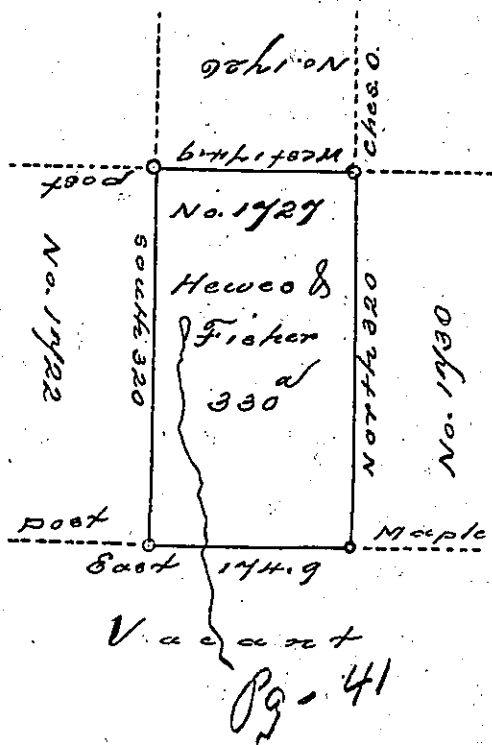 No. 1726
Ches. O.
West 174.9
post
No. 1727
Hewes &
Fisher
330 a
South 320
No. 1722
North 320
No. 1730
post
Maple
East 174.9
Vacant
Pg. 41